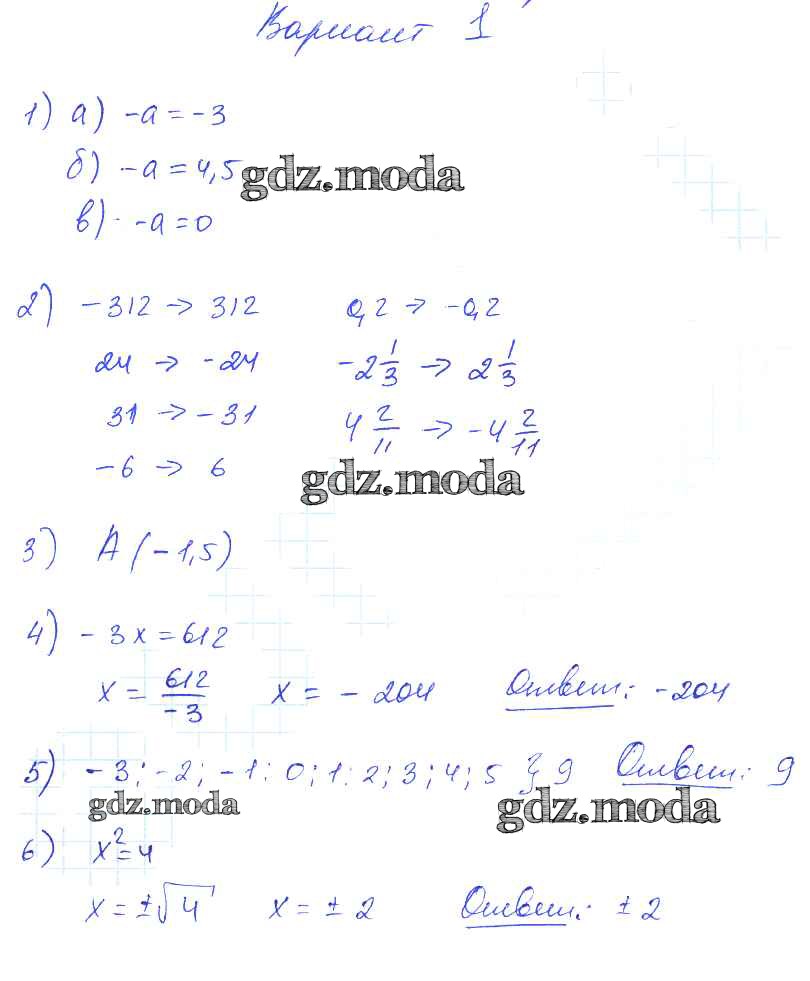 Вариант 1
1) а) -a = -3
б) -a = 4,5
gdz.moda
в) -a = 0
2) -312 → 312 0,2 → -0,2
24 → -24 -2 1/3 → 2 1/3
31 → -31 4 2/11 → -4 2/11
-6 → 6
gdz.moda
3) A (-1,5)
4) -3x = 612
x = 612/-3 x = -204 Ответ: -204
5) -3; -2; -1; 0; 1; 2; 3; 4; 5 } 9 Ответ: 9
gdz.moda gdz.moda
6) x² = 4
x = ±√4 x = ± 2 Ответ: ± 2